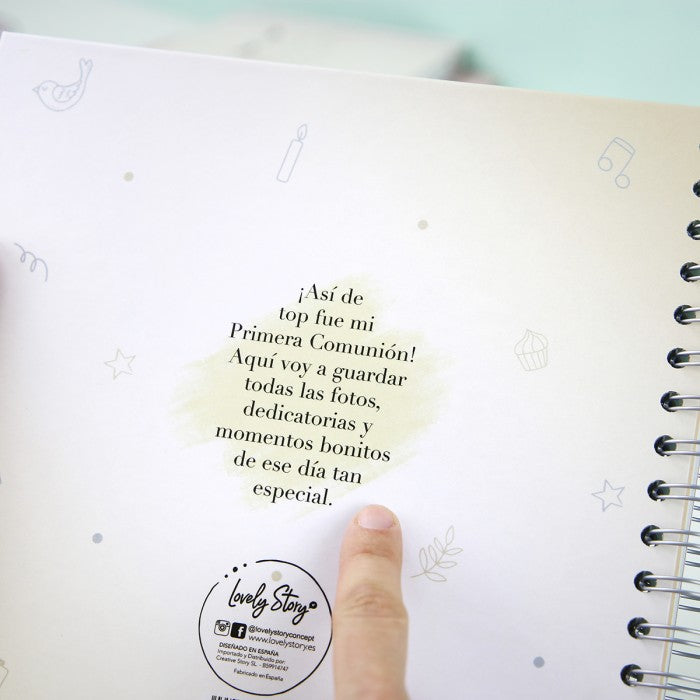 ¡Así de
top fue mi
Primera Comunión!
Aquí voy a guardar
todas las fotos,
dedicatorias y
momentos bonitos
de ese día tan
especial.
Lovely Story
@lovelystoryconcept
www.lovelystory.es
DISEÑADO EN ESPAÑA
Importado y Distribuido por:
Creative Story SL - B59914747
Fabricado en España